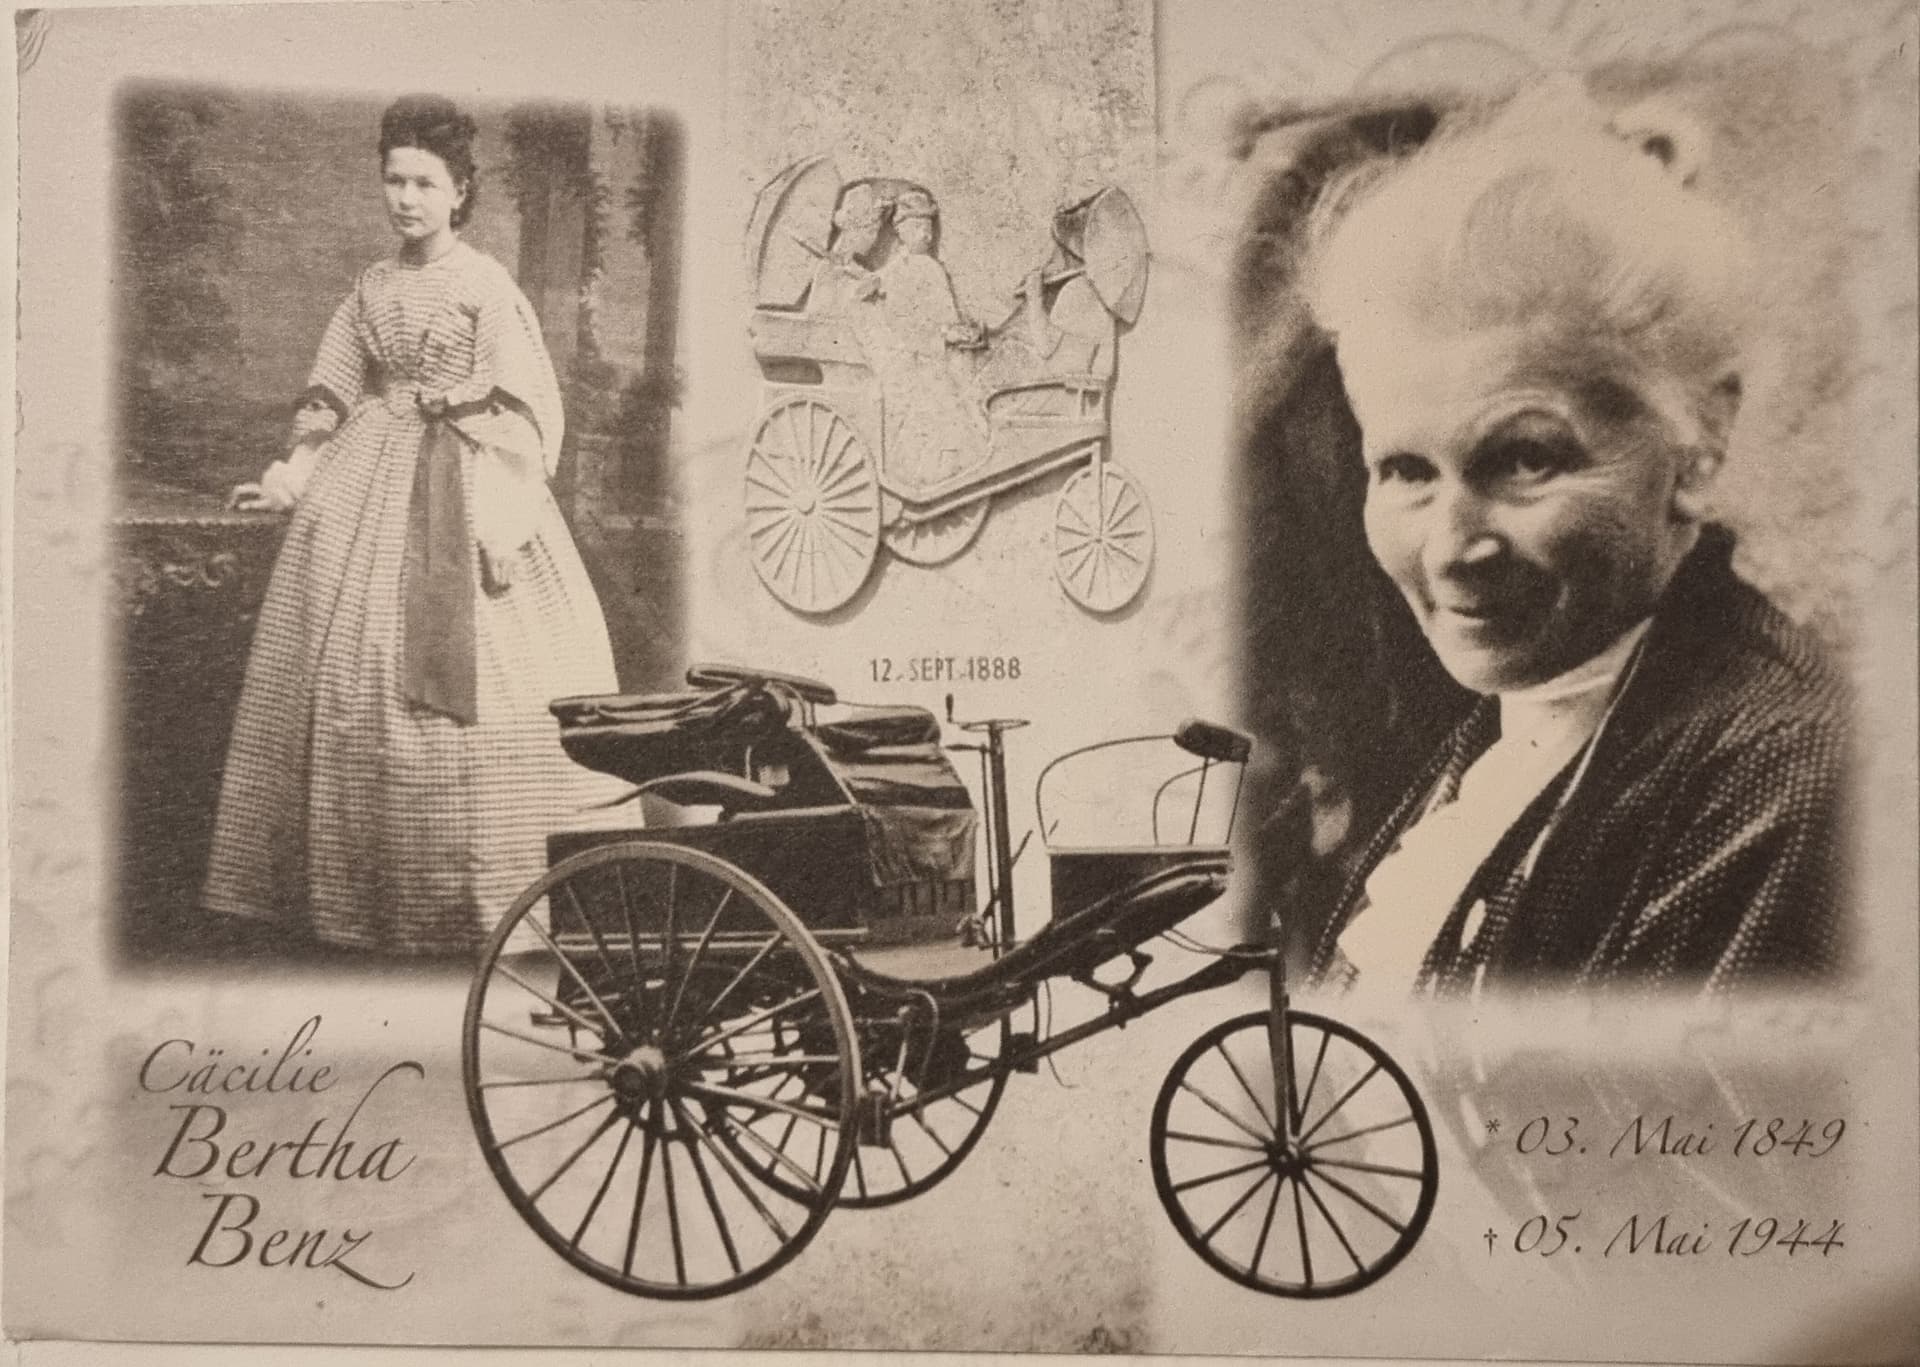 12. SEPT. 1888
Cäcilie
Bertha
Benz
* 03. Mai 1849
† 05. Mai 1944